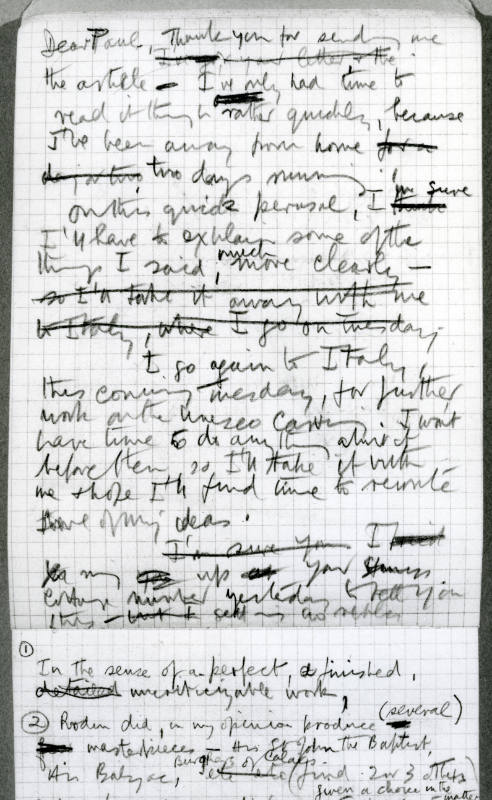 Dear Paul, Thank you for sending me
I've your letter & the
the article – I've only had time to
read it through rather quickly, because
I've been away from home for a
day or two two days running
on this quick perusal, I I'm sure
I'll have to explain some of the
things I said, much more clearly –
so I'll take it away with me
to Italy, where I go on Tuesday.
I go again to Italy,
this coming Tuesday, for further
work on the Unesco Carving. I wont
have time to do anything about it
before then, so I'll take it with
me & hope I'll find time to rewrite
some of my ideas.
I'm sure you I tried
up your
number yesterday to tell you
this – but no reply
①
In the sense of a perfect, a finished,
detailed uncriticizable work,
② Rodin did, in my opinion produce (several)
masterpieces – His St John the Baptist,
His Balzac, Burghers of Calais,
etc etc (find 2 or 3 others)
given a choice in the
matter